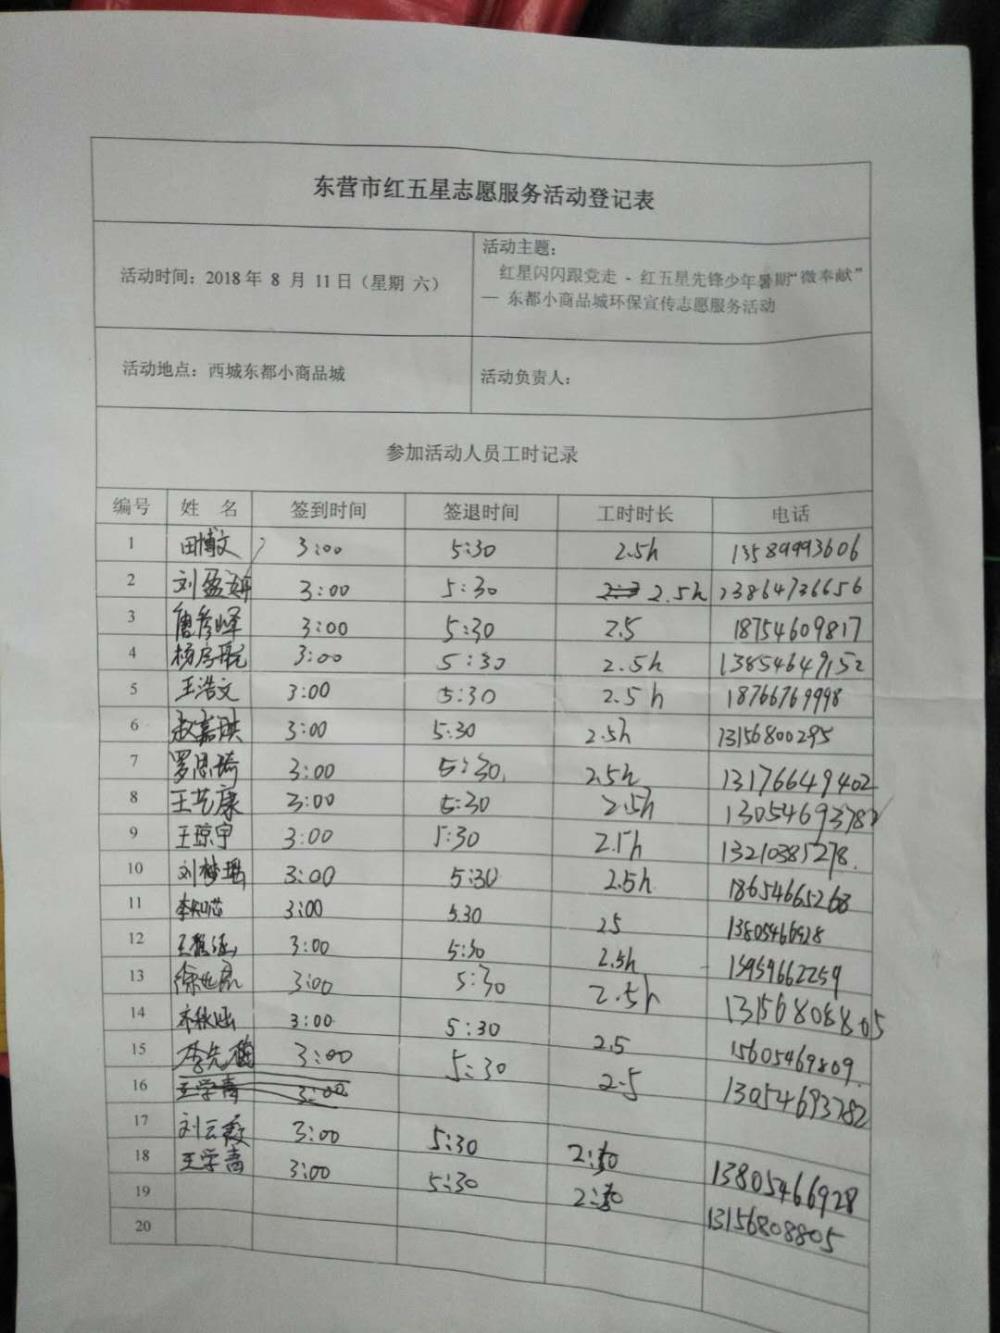 东营市红五星志愿服务活动登记表
活动时间：2018 年 8 月 11 日（星期 六）
活动主题：
红星闪闪跟党走 - 红五星先锋少年暑期“微奉献”
— 东都小商品城环保宣传志愿服务活动
活动地点：西城东都小商品城
活动负责人：
参加活动人员工时记录
编号 姓 名 签到时间 签退时间 工时时长 电话
1 田博文 3:00 5:30 2.5h 13589993606
2 刘盈 3:00 5:30 2.5h 13864736656
3 唐彦峰 3:00 5:30 2.5 18754609817
4 杨 3:00 5:30 2.5h 13854649152
5 王浩文 3:00 5:30 2.5h 18766769998
6 嘉琪 3:00 5:30 2.5h 13156800295
7 罗思琦 3:00 5:30 2.5h 13176649402
8 王艺康 3:00 5:30 2.5h 13054693782
9 王琼宇 3:00 5:30 2.5h 13210385278
10 刘梦瑶 3:00 5:30 2.5h 18654665268
11 李知芯 3:00 5.30 25
12 王雅涵 3:00 5:30 2.5h 15959662259
13 徐 3:00 5:30 2.5h 13156808805
14 3:00 5:30 2.5 15605469809
15 李先 3:00 5:30 2.5 13054693782
16 王学青 3:00
17 刘云毅 3:00 5:30 2:30 13805466928
18 王学青 3:00 5:30 2:30 13156808805
19
20